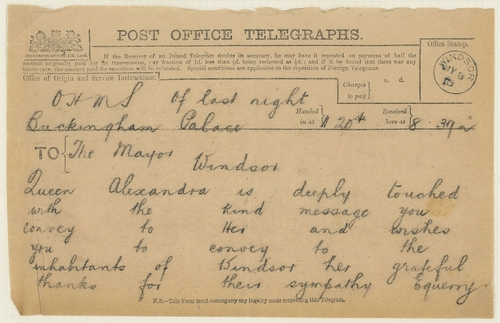 POST OFFICE TELEGRAPHS.
If the Receiver of an Inland Telegram doubts its accuracy, he may have it repeated on payment of half the
amount originally paid for its transmission, any fraction of 1d. less than ½d. being reckoned as ½d.; and if it be found that there was any
inaccuracy, the amount paid for repetition will be refunded. Special conditions are applicable to the repetition of Foreign Telegrams.
Office of Origin and Service Instructions.
Charges to pay
s. d.
Office Stamp.
WINDSOR
MY
10
OHMS Of last night
Buckingham Palace
Handed in at
11 20
Received here at
8.39a
TO { The Mayor
Windsor
Queen Alexandra is deeply touched
with the kind message you
convey to Her and wishes
you to convey to the
inhabitants of Windsor her grateful
thanks for their sympathy Equerry.
N.B.—This Form must accompany any inquiry made respecting this Telegram.